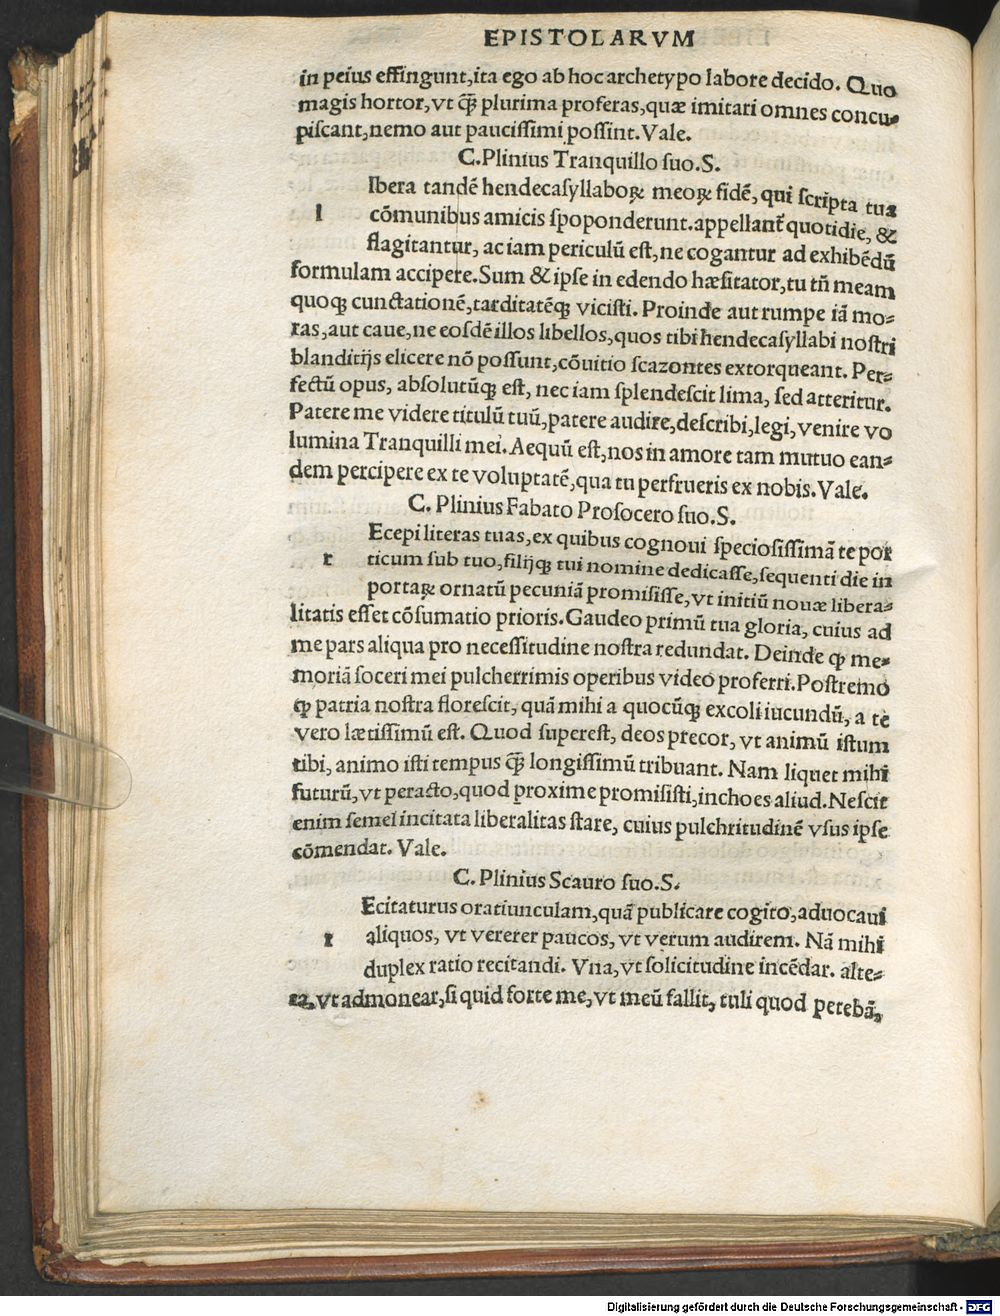 EPISTOLARVM
in peius effingunt,ita ego ab hoc archetypo labore decido. Quo
magis hortor, vt ꝙ̃ plurima proferas,quæ imitari omnes concu-
piſcant,nemo aut pauciſſimi poſſint. Vale.
C.Plinius Tranquillo ſuo.S.
Ibera tandẽ hendecaſyllaboꝝ meoꝝ fidẽ, qui ſcripta tua
l cõmunibus amicis ſpoponderunt.appellant᷑ quotidie, &
flagitantur, ac iam periculũ eſt, ne cogantur ad exhibẽdũ
formulam accipere.Sum & ipſe in edendo hæſitator,tu tñ meam
quoqꝫ cunctationẽ,tarditatẽqꝫ viciſti. Proinde aut rumpe iã mo-
ras,aut caue,ne eoſdẽ illos libellos,quos tibi hendecaſyllabi noſtri
blanditijs elicere nõ poſſunt,cõuitio ſcazontes extorqueant. Per-
fectũ opus, abſolutũqꝫ eſt, nec iam ſplendeſcit lima, ſed atteritur.
Patere me videre titulũ tuũ,patere audire,deſcribi,legi,venire vo
lumina Tranquilli mei. Aequũ eſt,nos in amore tam mutuo ean-
dem percipere ex te voluptatẽ,qua tu perfrueris ex nobis.Vale.
C. Plinius Fabato Proſocero ſuo.S.
Ecepi literas tuas,ex quibus cognoui ſpecioſiſſimã te por
r ticum ſub tuo,filijqꝫ tui nomine dedicaſſe,ſequenti die in
portaꝝ ornatũ pecuniã promiſiſſe,vt initiũ nouæ libera-
litatis eſſet cõſumatio prioris.Gaudeo primũ tua gloria, cuius ad
me pars aliqua pro neceſſitudine noſtra redundat. Deinde ꝙ me-
moriã ſoceri mei pulcherrimis operibus video proferri.Poſtremo
ꝙ patria noſtra floreſcit, quã mihi a quocũqꝫ excoli iucundũ, a te
vero lætiſſimũ eſt. Quod ſupereſt, deos precor, vt animũ iſtum
tibi, animo iſti tempus ꝙ̃ longiſſimũ tribuant. Nam liquet mihi
futurũ,vt peracto,quod proxime promiſiſti,inchoes aliud.Neſcit
enim ſemel incitata liberalitas ſtare, cuius pulchritudinẽ vſus ipſe
cõmendat. Vale.
C. Plinius Scauro ſuo.S.
Ecitaturus oratiunculam,quã publicare cogito,aduocaui
r aliquos, vt vererer paucos, vt verum audirem. Nã mihi
duplex ratio recitandi. Vna,vt ſolicitudine incẽdar. alte-
ra,vt admonear,ſi quid forte me,vt meũ fallit, tuli quod petebã,
Digitalisierung gefördert durch die Deutsche Forschungsgemeinschaft - DFG